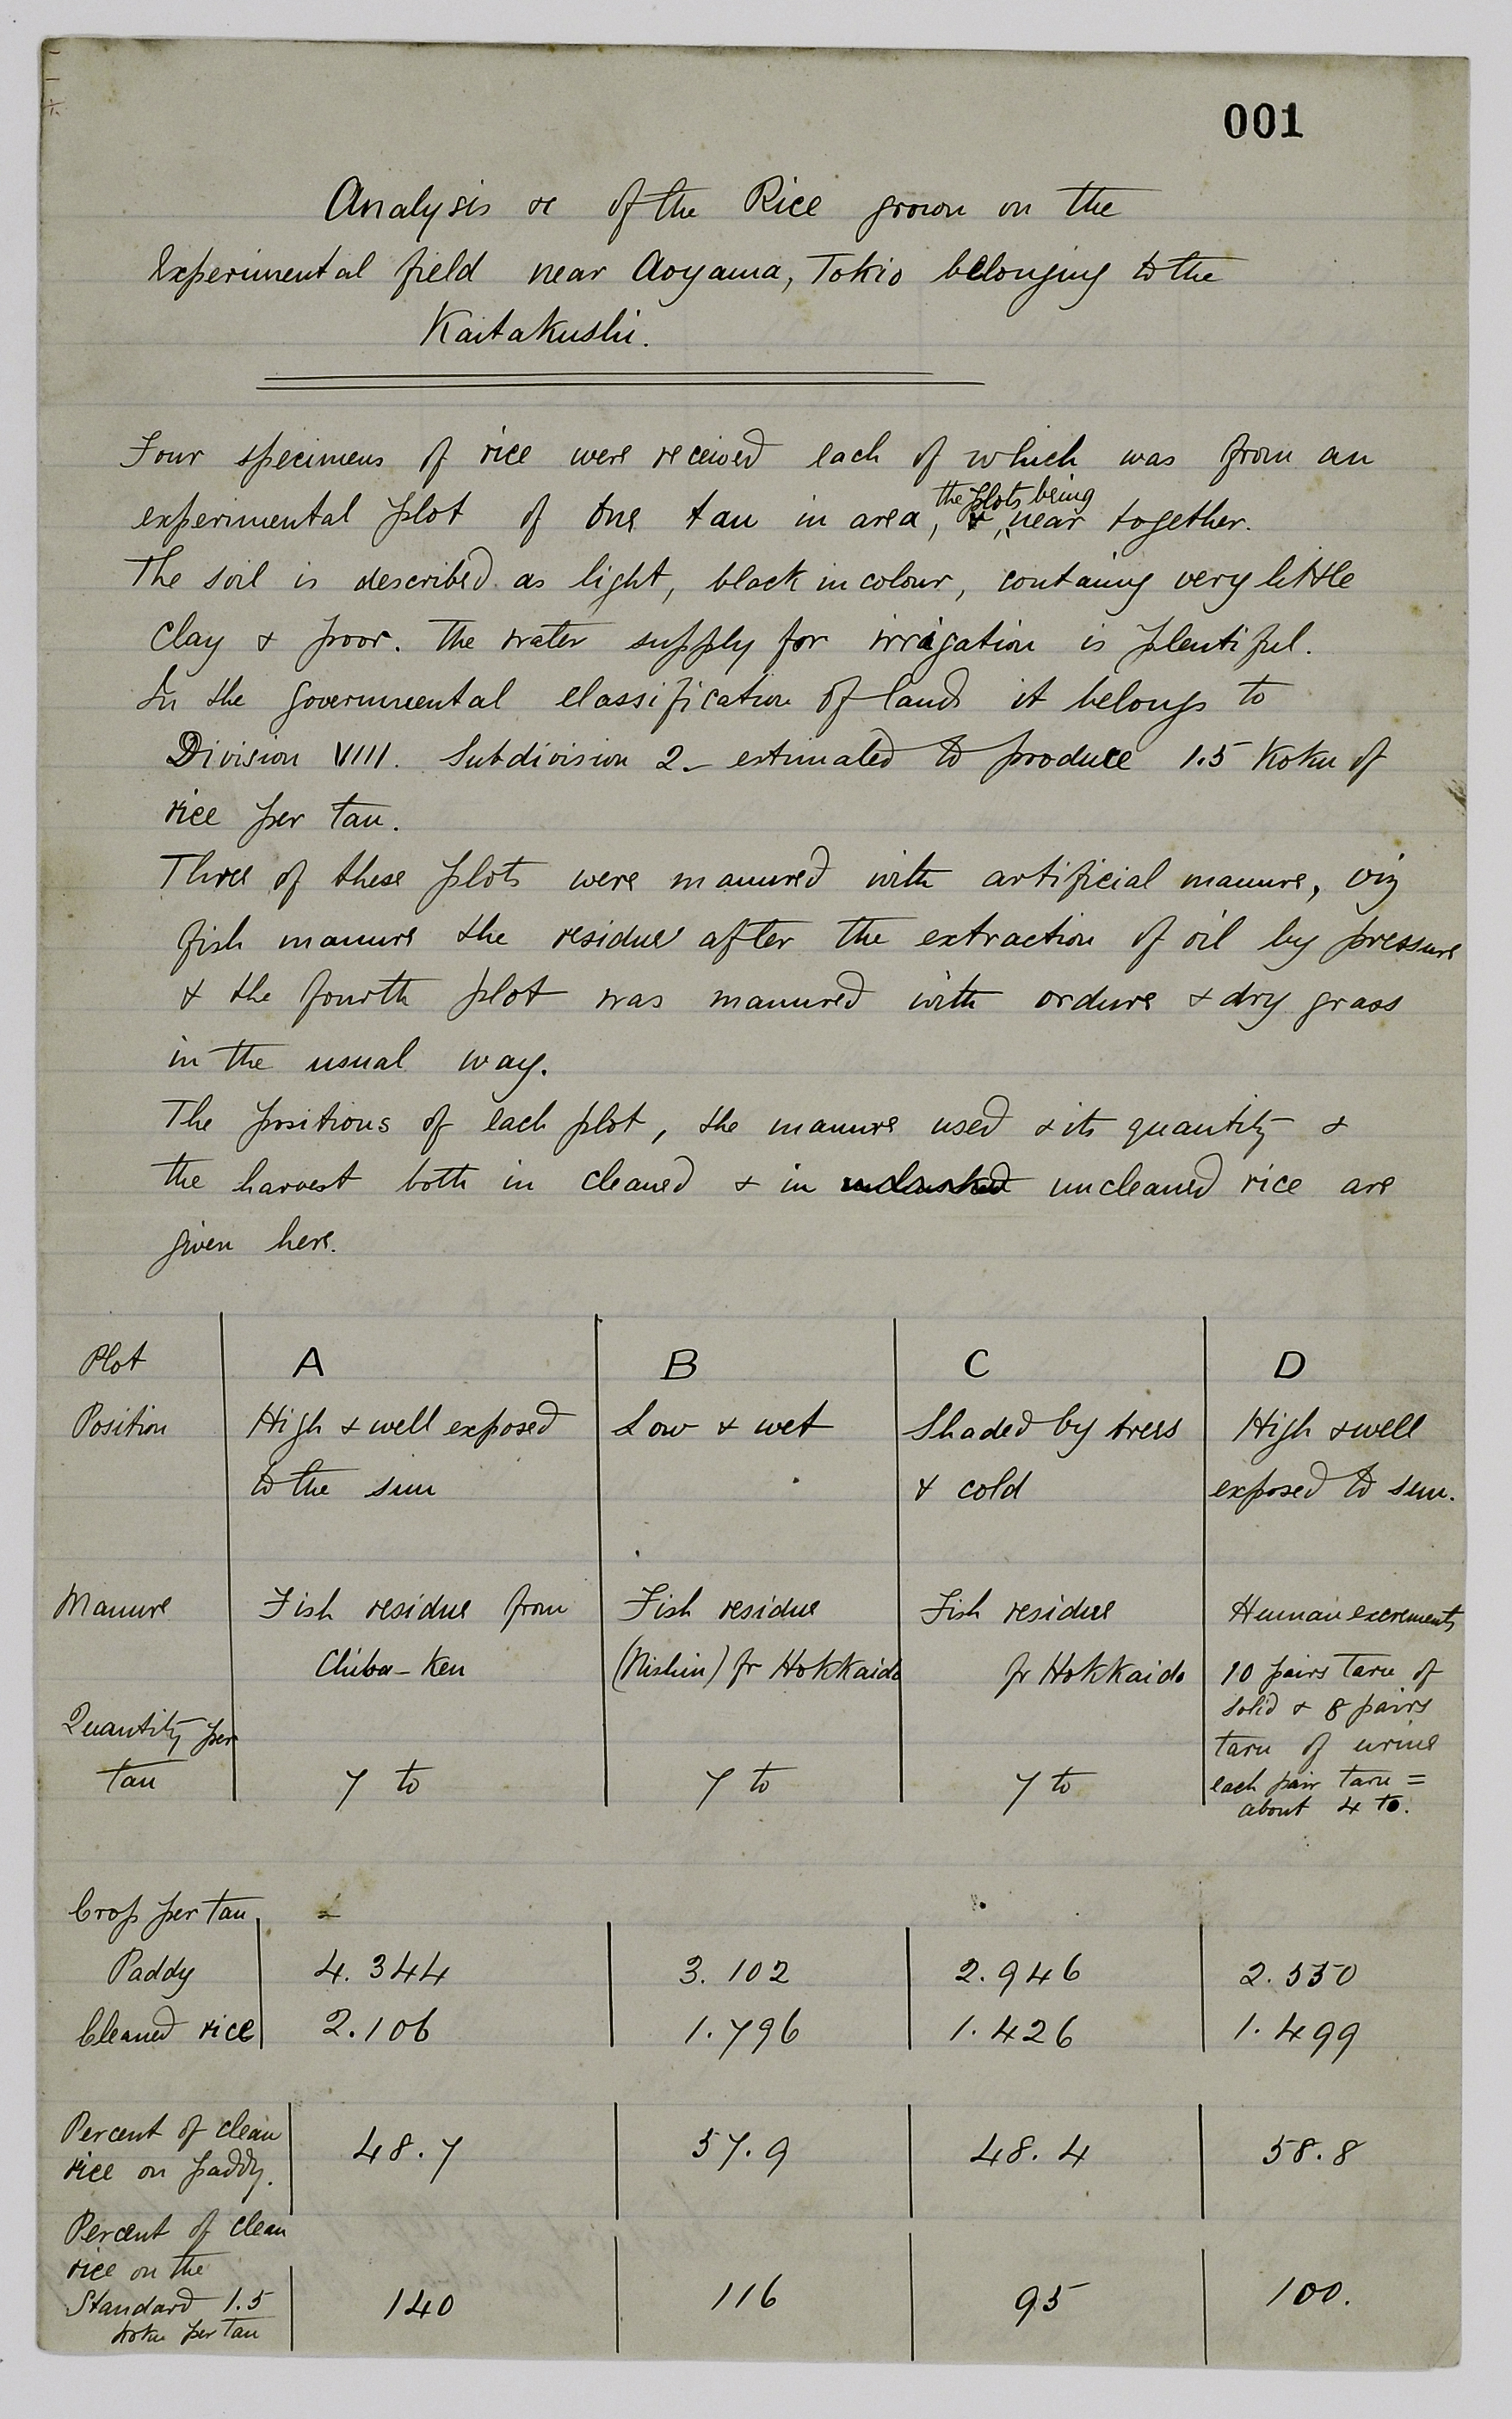 001
Analysis &c of the Rice grown on the
Experimental field near Aoyama, Tokio belonging to the
Kaitakushi.
Four specimens of rice were received each of which was from an
the plots being
experimental plot of one tan in area, &, near together.
The soil is described as light, black in colour, containg very little
clay & poor. The water supply for irrigation is plentiful.
In the governmental classification of land it belongs to
Division VIII. Subdivision 2 - estimated to produce 1.5 Koku of
rice per tan.
Three of these plots were manured with artificial manure, viz
fish manure the residue after the extraction of oil by pressure
& the fourth plot was manured with ordure & dry grass
in the usual way.
The positions of each plot, the manure used & its quantity &
the harvest both in cleaned & in uncleaned rice are
given here.
Plot A B C D
Position High & well exposed Low & wet Shaded by trees High & well
to the sun & cold exposed to sun.
Manure Fish residue from Fish residue Fish residue Human excrements
Chiba-Ken (Nishin) fr Hokkaido fr Hokkaido 10 pairs taru of
solid & 8 pairs
Quantity per taru of urine
tan 7 to 7 to 7 to each pair taru =
about 4 to.
Crop per tan
Paddy 4.344 3.102 2.946 2.550
Cleaned rice 2.106 1.796 1.426 1.499
Percent of clean
rice on paddy. 48.7 57.9 48.4 58.8
Percent of clean
rice on the
Standard 1.5 140 116 95 100.
koku per tan